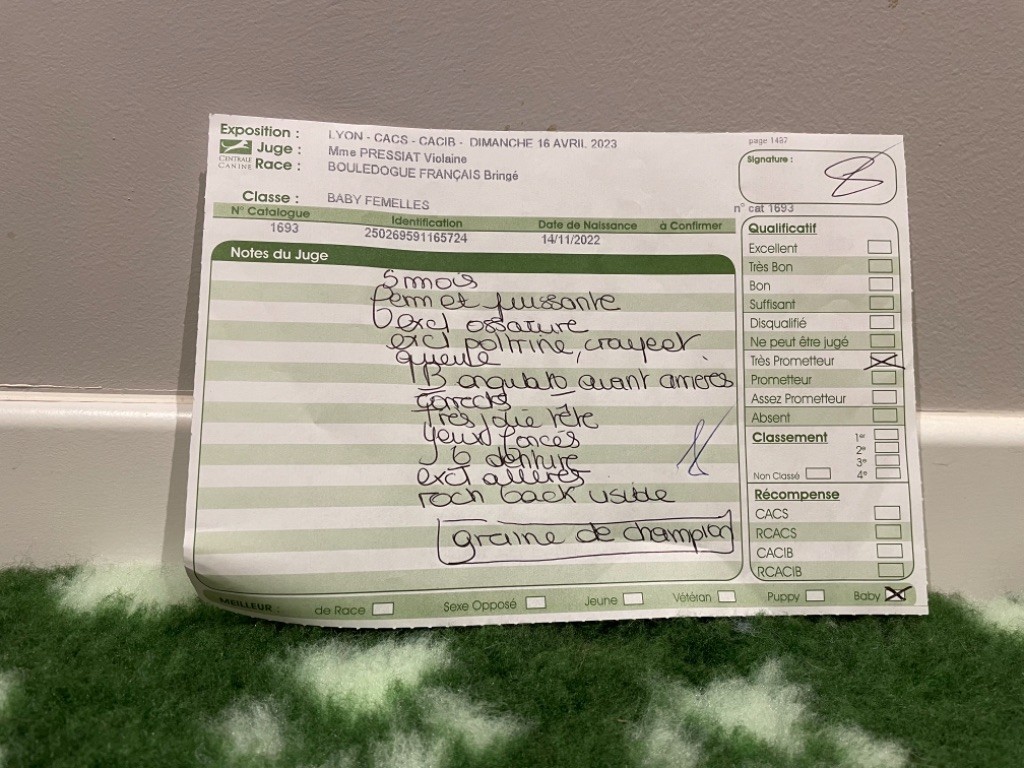 Exposition : LYON - CACS - CACIB - DIMANCHE 16 AVRIL 2023
page 1487
CENTRALE CANINE
Juge : Mme PRESSIAT Violaine
Signature :
Race : BOULEDOGUE FRANÇAIS Bringé
Classe : BABY FEMELLES
n° cat 1693
N° Catalogue Identification Date de Naissance à Confirmer
1693 250269591165724 14/11/2022
Notes du Juge
5 mois
Fem et puissante
exct ossature
exct poitrine, craypet.
gueule
TB angulato avant arrières
corrects
Très jolie tête
yeux foncés
denture
exct allures
roch back visible
graine de champion
Qualificatif
Excellent
Très Bon
Bon
Suffisant
Disqualifié
Ne peut être jugé
Très Prometteur
Prometteur
Assez Prometteur
Absent
Classement 1er
2e
3e
Non Classé 4e
Récompense
CACS
RCACS
CACIB
RCACIB
MEILLEUR de Race Sexe Opposé Jeune Vétéran Puppy Baby